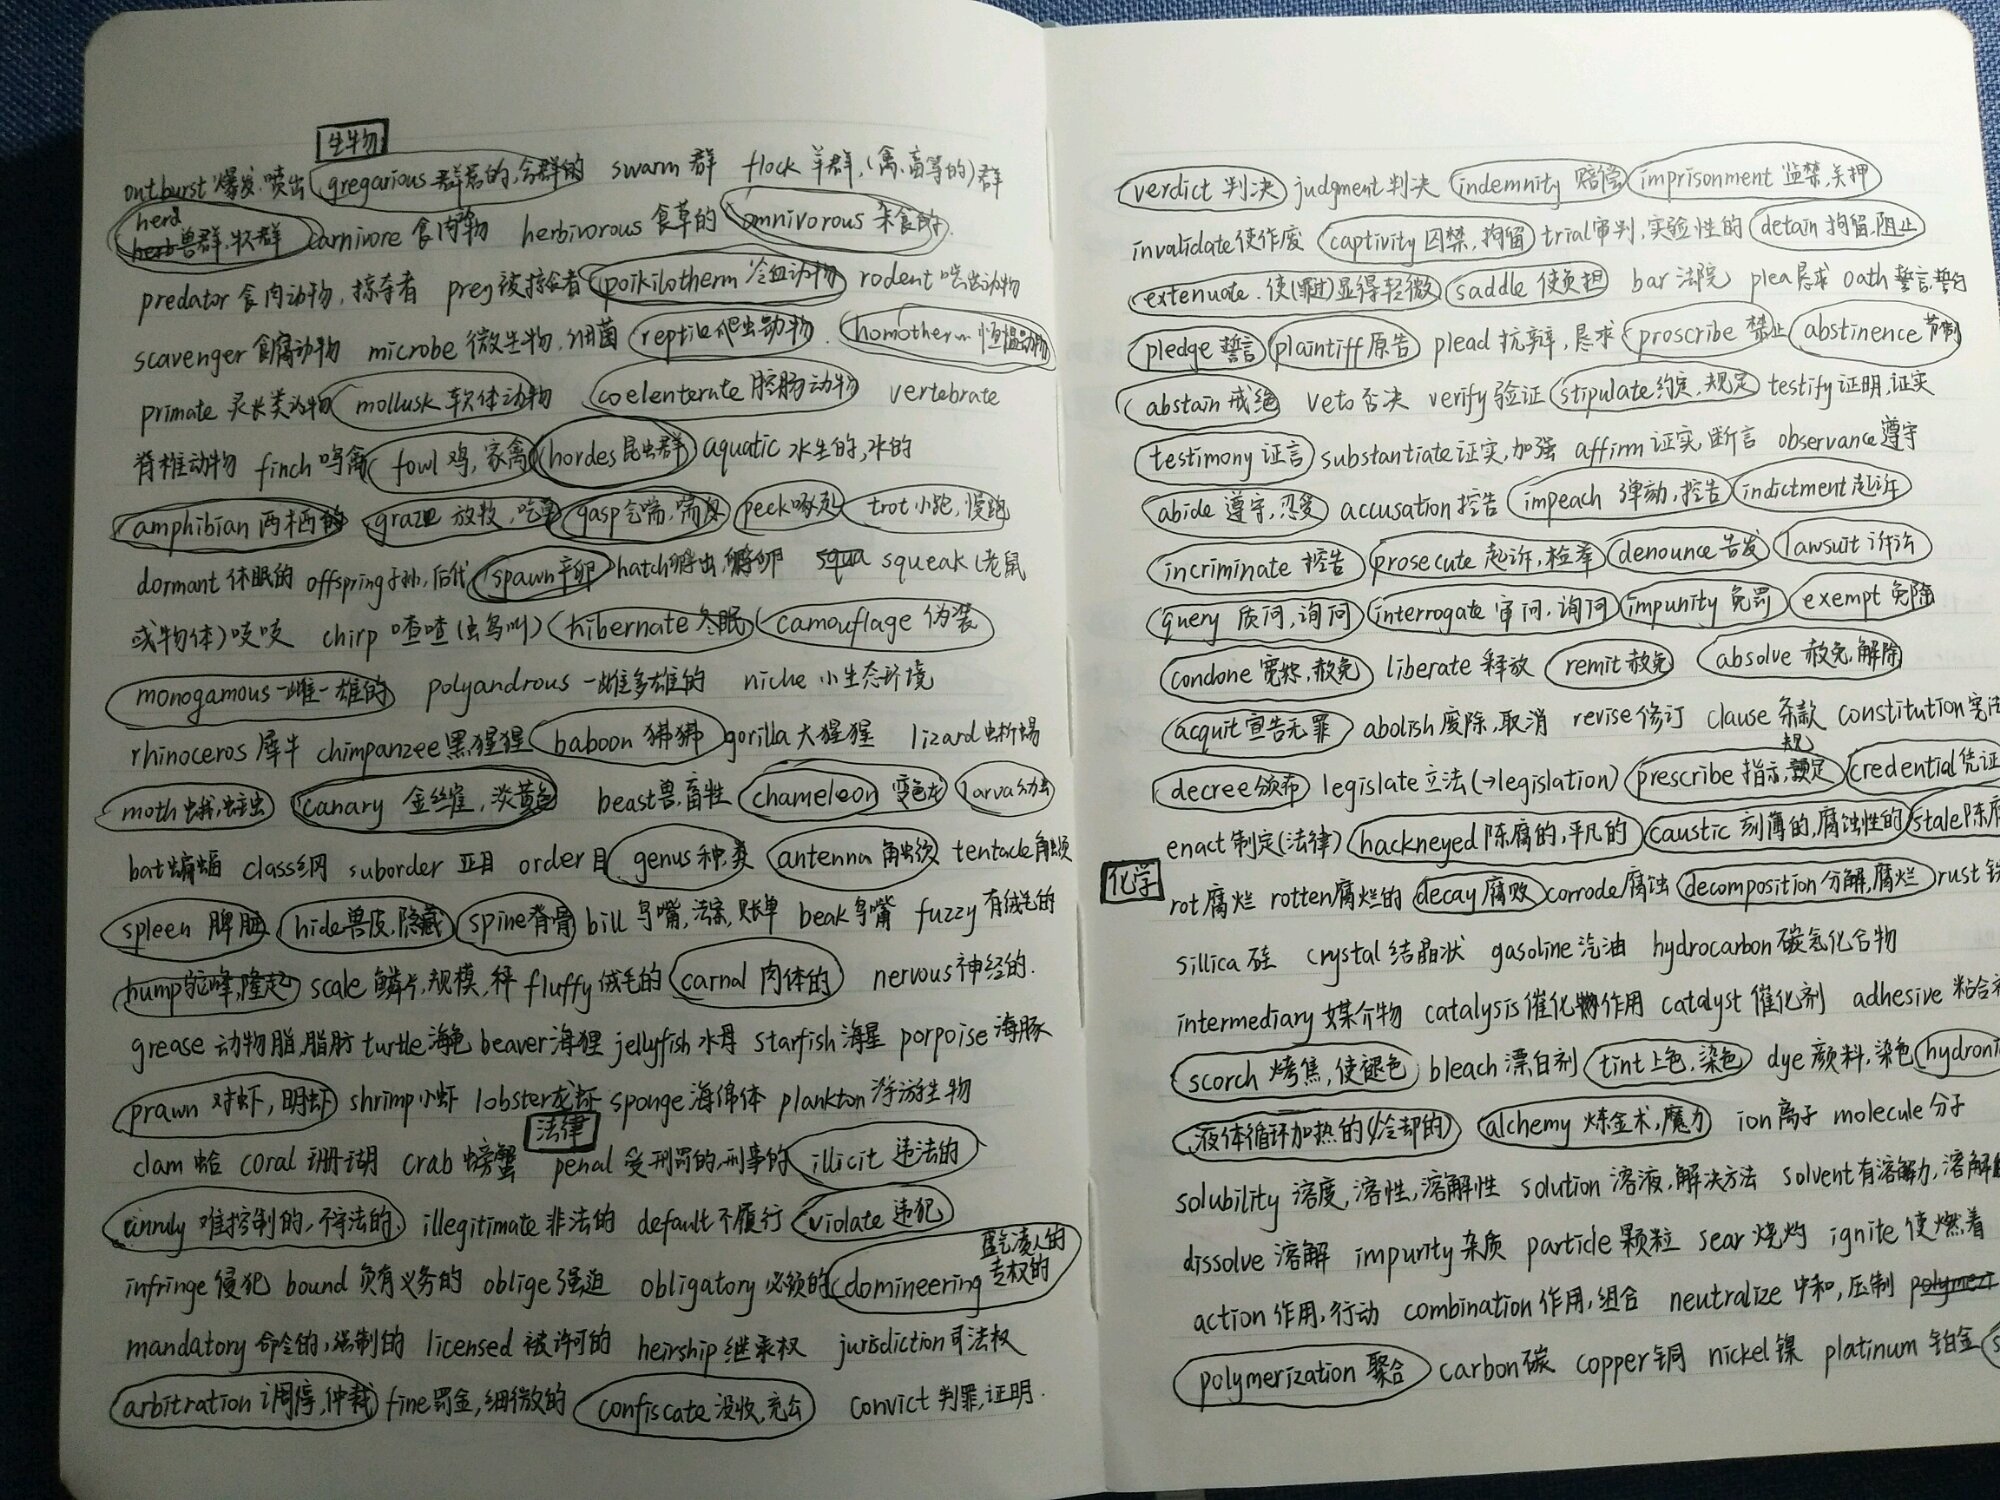 生物
outburst 爆发.喷出 gregarious 群居的,合群的 swarm 群 flock 羊群,(禽.畜等的)群
herd
herb 兽群,牧群 carnivore 食肉物 herbivorous 食草的 omnivorous 杂食的.
predator 食肉动物,掠夺者 prey 被掠食者 poikilotherm 冷血动物 rodent 啮齿动物
scavenger 食腐动物 microbe 微生物,细菌 reptile 爬虫动物. homotherm 恒温动物
primate 灵长类动物 mollusk 软体动物 coelenterate 腔肠动物 vertebrate
脊椎动物 finch 鸣禽 fowl 鸡,家禽 hordes 昆虫群 aquatic 水生的,水的
amphibian 两栖的 graze 放牧,吃草 gasp 气喘,喘息 peck 啄孔 trot 小跑,慢跑
dormant 休眠的 offspring 子孙,后代 spawn 产卵 hatch 孵出,孵卵 squa squeak (老鼠
或物体)吱吱 chirp 喳喳(虫鸟叫) hibernate 冬眠 camouflage 伪装
monogamous 一雌一雄的 polyandrous 一雌多雄的 niche 小生态环境
rhinoceros 犀牛 chimpanzee 黑猩猩 baboon 狒狒 gorilla 大猩猩 lizard 蜥蜴
moth 蛾,蛀虫 canary 金丝雀,淡黄色 beast 兽,畜牲 chameleon 变色龙 larva 幼虫
bat 蝙蝠 class 纲 suborder 亚目 order 目 genus 种,类 antenna 角虫须 tentacle 角虫须
spleen 脾脏 hide 兽皮,隐藏 spine 脊骨 bill 鸟嘴,法案,账单 beak 鸟嘴 fuzzy 有绒毛的
hump 驼峰,隆起 scale 鳞片,规模,秤 fluffy 绒毛的 carnal 肉体的 nervous 神经的.
grease 动物脂,脂肪 turtle 海龟 beaver 海狸 jellyfish 水母 starfish 海星 porpoise 海豚
prawn 对虾,明虾 shrimp 小虾 lobster 龙虾 sponge 海绵体 plankton 浮游生物
法律
clam 蛤 coral 珊瑚 crab 螃蟹 penal 受刑罚的,刑事的 illicit 违法的
unruly 难控制的,不守法的. illegitimate 非法的 default 不履行 violate 违犯
infringe 侵犯 bound 负有义务的 oblige 强迫 obligatory 必须的 domineering 盛气凌人的 专权的
mandatory 命令的,强制的 licensed 被许可的 heirship 继承权 jurisdiction 司法权
arbitration 调停,仲裁 fine 罚金,细微的 confiscate 没收,充公 convict 判罪,证明.
verdict 判决 judgment 判决 indemnity 赔偿 imprisonment 监禁,关押
invalidate 使作废 captivity 囚禁,拘留 trial 审判,实验性的 detain 拘留,阻止
extenuate.使(罪过)显得轻微 saddle 使负担 bar 法院 plea 恳求 oath 誓言,誓约
pledge 誓言 plaintiff 原告 plead 抗辩,恳求 proscribe 禁止 abstinence 节制
abstain 戒绝 veto 否决 verify 验证 stipulate 约定,规定 testify 证明,证实
testimony 证言 substantiate 证实,加强 affirm 证实,断言 observance 遵守
abide 遵守,忍受 accusation 控告 impeach 弹劾,控告 indictment 起诉
incriminate 控告 prosecute 起诉,检举 denounce 告发 lawsuit 诉讼
query 质问,询问 interrogate 审问.询问 impunity 免罚 exempt 免除
condone 宽恕,赦免 liberate 释放 remit 赦免 absolve 赦免,解除
acquit 宣告无罪 abolish 废除,取消 revise 修订 clause 条款 constitution 宪法
规
decree 颁布 legislate 立法(→legislation) prescribe 指示,定 credential 凭证
enact 制定(法律) hackneyed 陈腐的,平凡的 caustic 刻薄的,腐蚀性的 stale 陈腐
化学
rot 腐烂 rotten 腐烂的 decay 腐败 corrode 腐蚀 decomposition 分解,腐烂 rust
sillica 硅 crystal 结晶状 gasoline 汽油 hydrocarbon 碳氢化合物
intermediary 媒介物 catalysis 催化作用 catalyst 催化剂 adhesive 粘合
scorch 烤焦,使褪色 bleach 漂白剂 tint 上色,染色 dye 颜料,染色 hydroni
液体循环加热的(冷却的) alchemy 炼金术,魔力 ion 离子 molecule 分子
solubility 溶度,溶性,溶解性 solution 溶液,解决方法 solvent 有溶解力,溶解
dissolve 溶解 impurity 杂质 particle 颗粒 sear 烧灼 ignite 使燃着
action 作用,行动 combination 作用,组合 neutralize 中和,压制 polymeri
polymerization 聚合 carbon 碳 copper 铜 nickel 镍 platinum 铂金